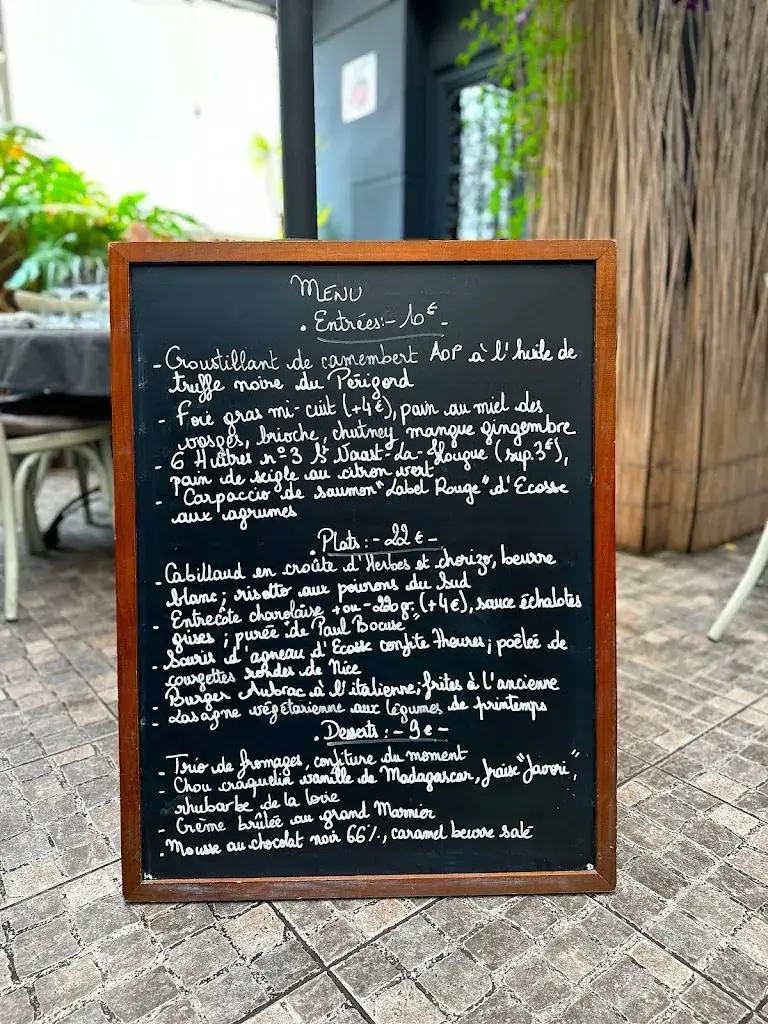 MENU
. Entrées:- 10€ -
- Croustillant de camembert AOP à l'huile de
truffe noire du Périgord
- Foie gras mi-cuit (+4€), pain au miel des
vosges, brioche, chutney mangue gingembre
- 6 Huîtres n°3 St Vaast-La-Hougue (sup.3€),
pain de seigle au citron vert
- Carpaccio de saumon "Label Rouge" d'Ecosse
aux agrumes
. Plats :- 22 € -
- Cabillaud en croûte d'Herbes et chorizo, beurre
blanc ; risotto aux poivrons du Sud
- Entrecôte charolaise + ou - 220 gr (+4€), sauce échalotes
grises ; purée "de Paul Bocuse"
- Souris d'agneau d'Ecosse confite 7heures ; poêlée de
courgettes rondes de Nice
- Burger Aubrac à l'italienne ; frites à l'ancienne
- Lasagne végétarienne aux légumes de printemps
. Desserts : - 9€ -
- Trio de fromages, confiture du moment
- Chou craquelin vanille de Madagascar, fraise "Javori",
rhubarbe de la Loire
- Crème brûlée au grand Marnier
. Mousse au chocolat noir 66%, caramel beurre salé